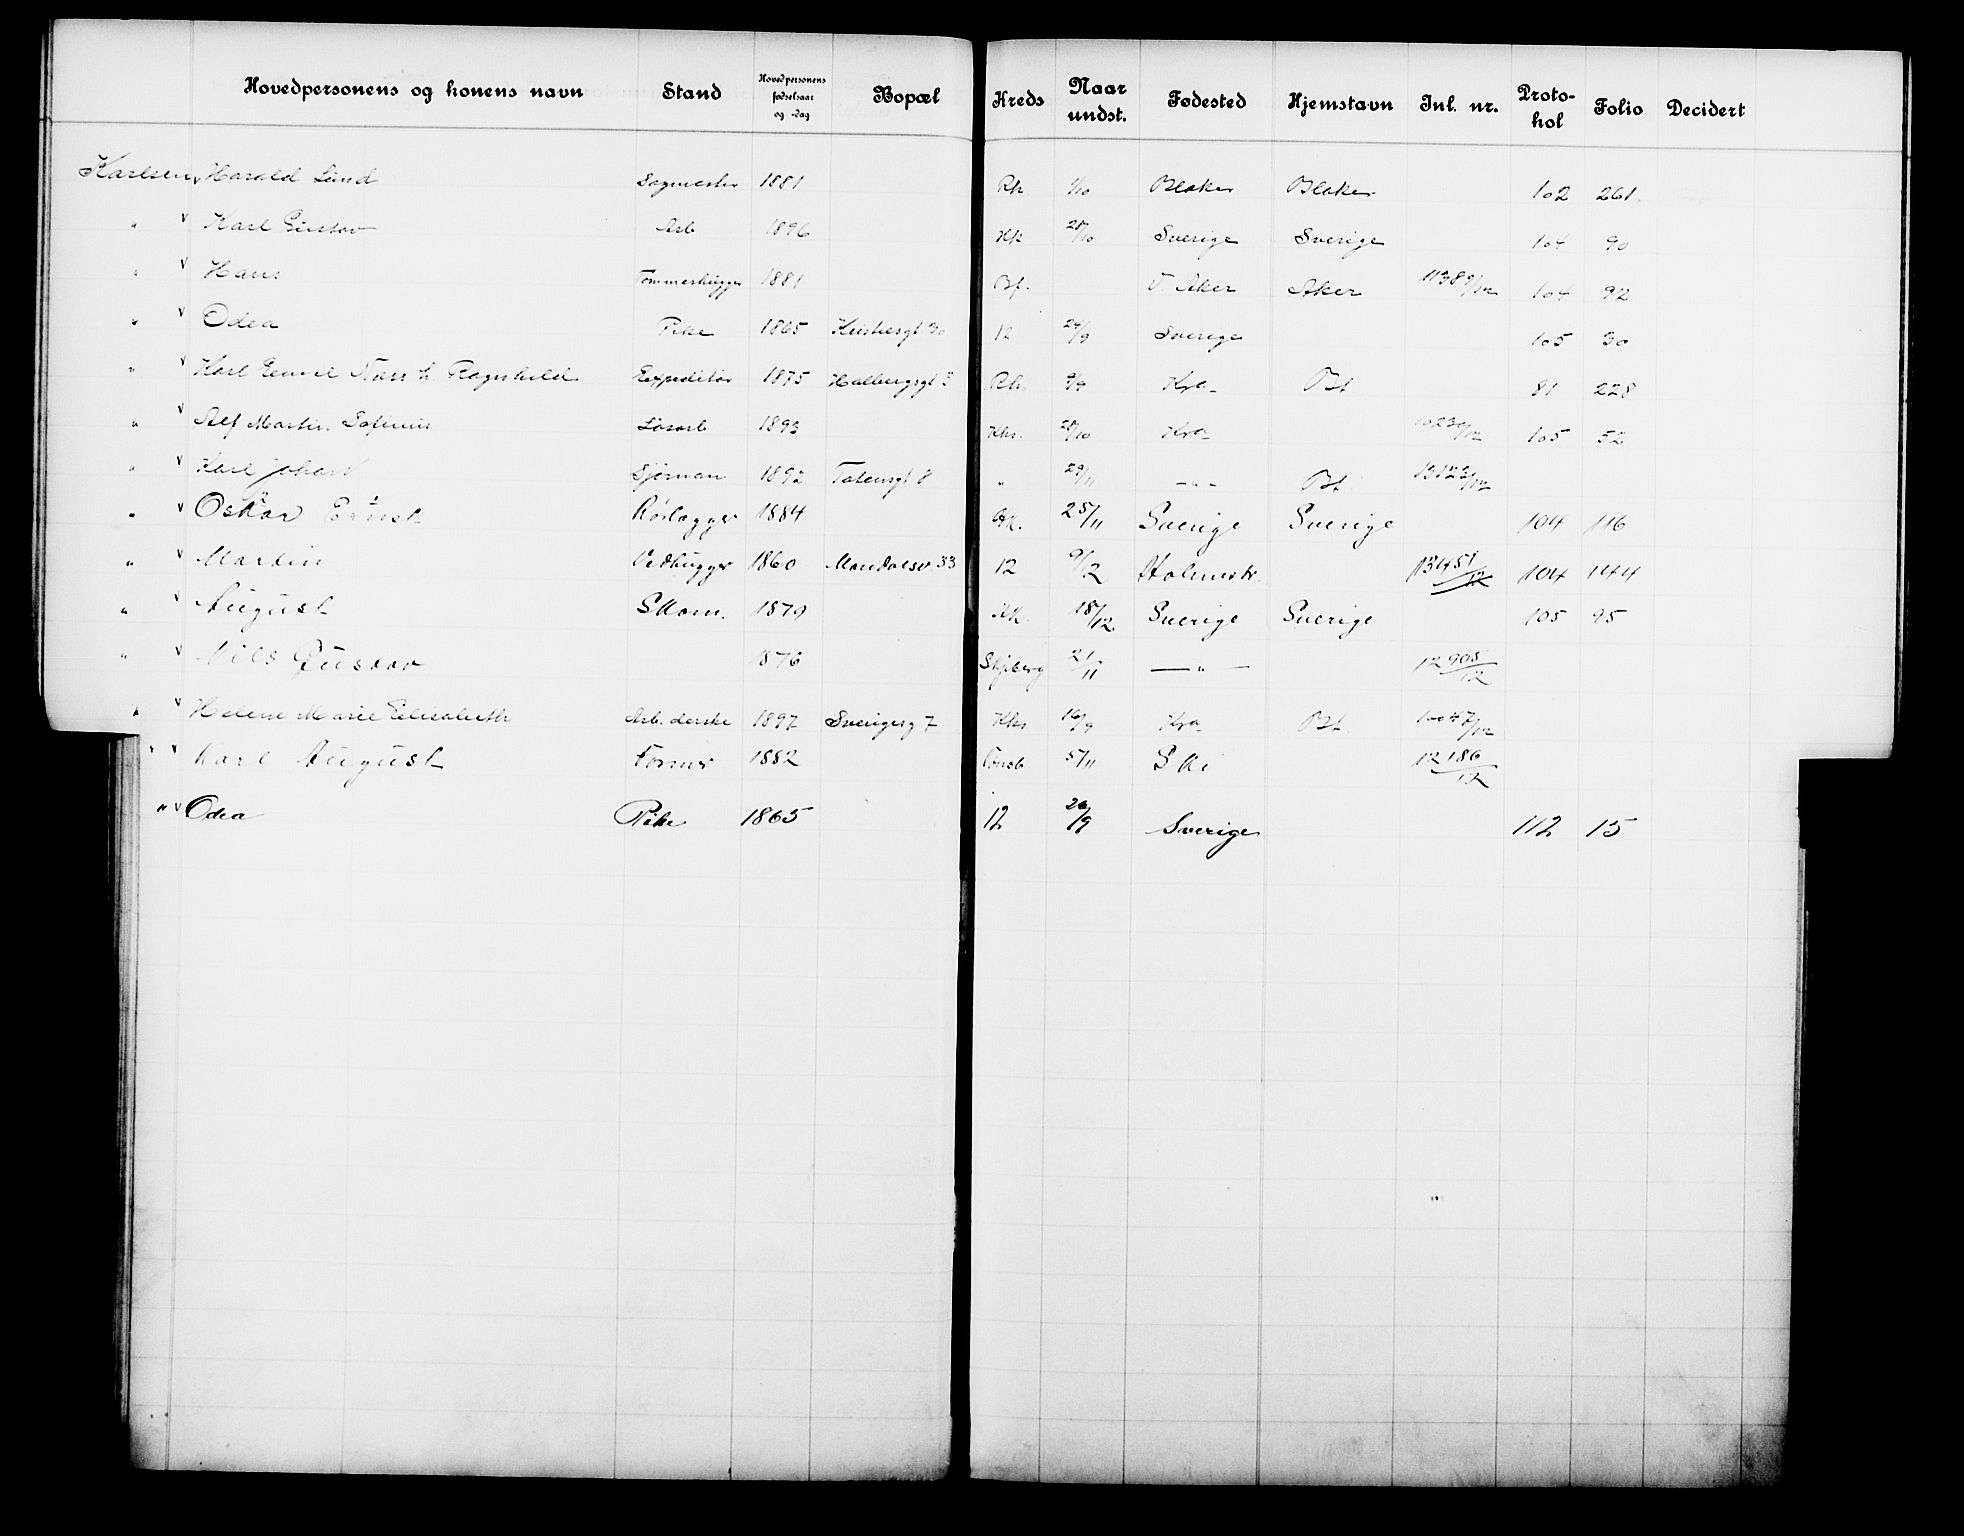 Hovedpersonens og konens navn Stand Hovedpersonens fødselsaar og -dag Bopæl Kreds Naar undst. Fødested Hjemstavn Inl. nr. Proto-kol Folio Decidert
Karlsen v Harald Lund Sagmester 1881 Rk 1/10 Blaker Blaker 102 261
" v Karl Gustav Arb 1896 Kk 28/10 Sverige Sverige 104 90
" v Hans Tømmerhugger 1881 Bf. V. Aker Aker 11389/12 104 92
" v Odea Pike 1865 30 12 24/9 Sverige 105 30
" v Karl Emil Næss h. Ragnhild Expeditør 1875 Holbergsgt 5 Rk 9/9 Kra Bt 81 228
" v Alf Martin Sofinius Løsarb 1893 Kks. 28/10 Kra 10230/12 105 52
" v Karl Johan Sjøman 1892 Totensgt 8 " 29/11 — " — Bt 13123/12
" v Oskar Ernst Rørlægger 1884 Kk. 25/11 Sverige Sverige 104 116
" v Martin Vedhugger 1860 Mandalsv 33 12 9/12 Holmestr. 13451/12 104 144
" v August Skom. 1879 Kk. 18/12. Sverige Sverige 105 95
" v Nils Gustav 1876 Skjeberg 21/11 — " — 12905/12
" v Helene Marie Elisabeth Arb. derske 1897 Sverigesg 7 Kks 16/9 Kra Bt. 10047/12
" v Karl August Former 1882 Tønsb 5/11 Ski 12186/12
" v Odea Pike 1865 12 26/9 Sverige 112 15